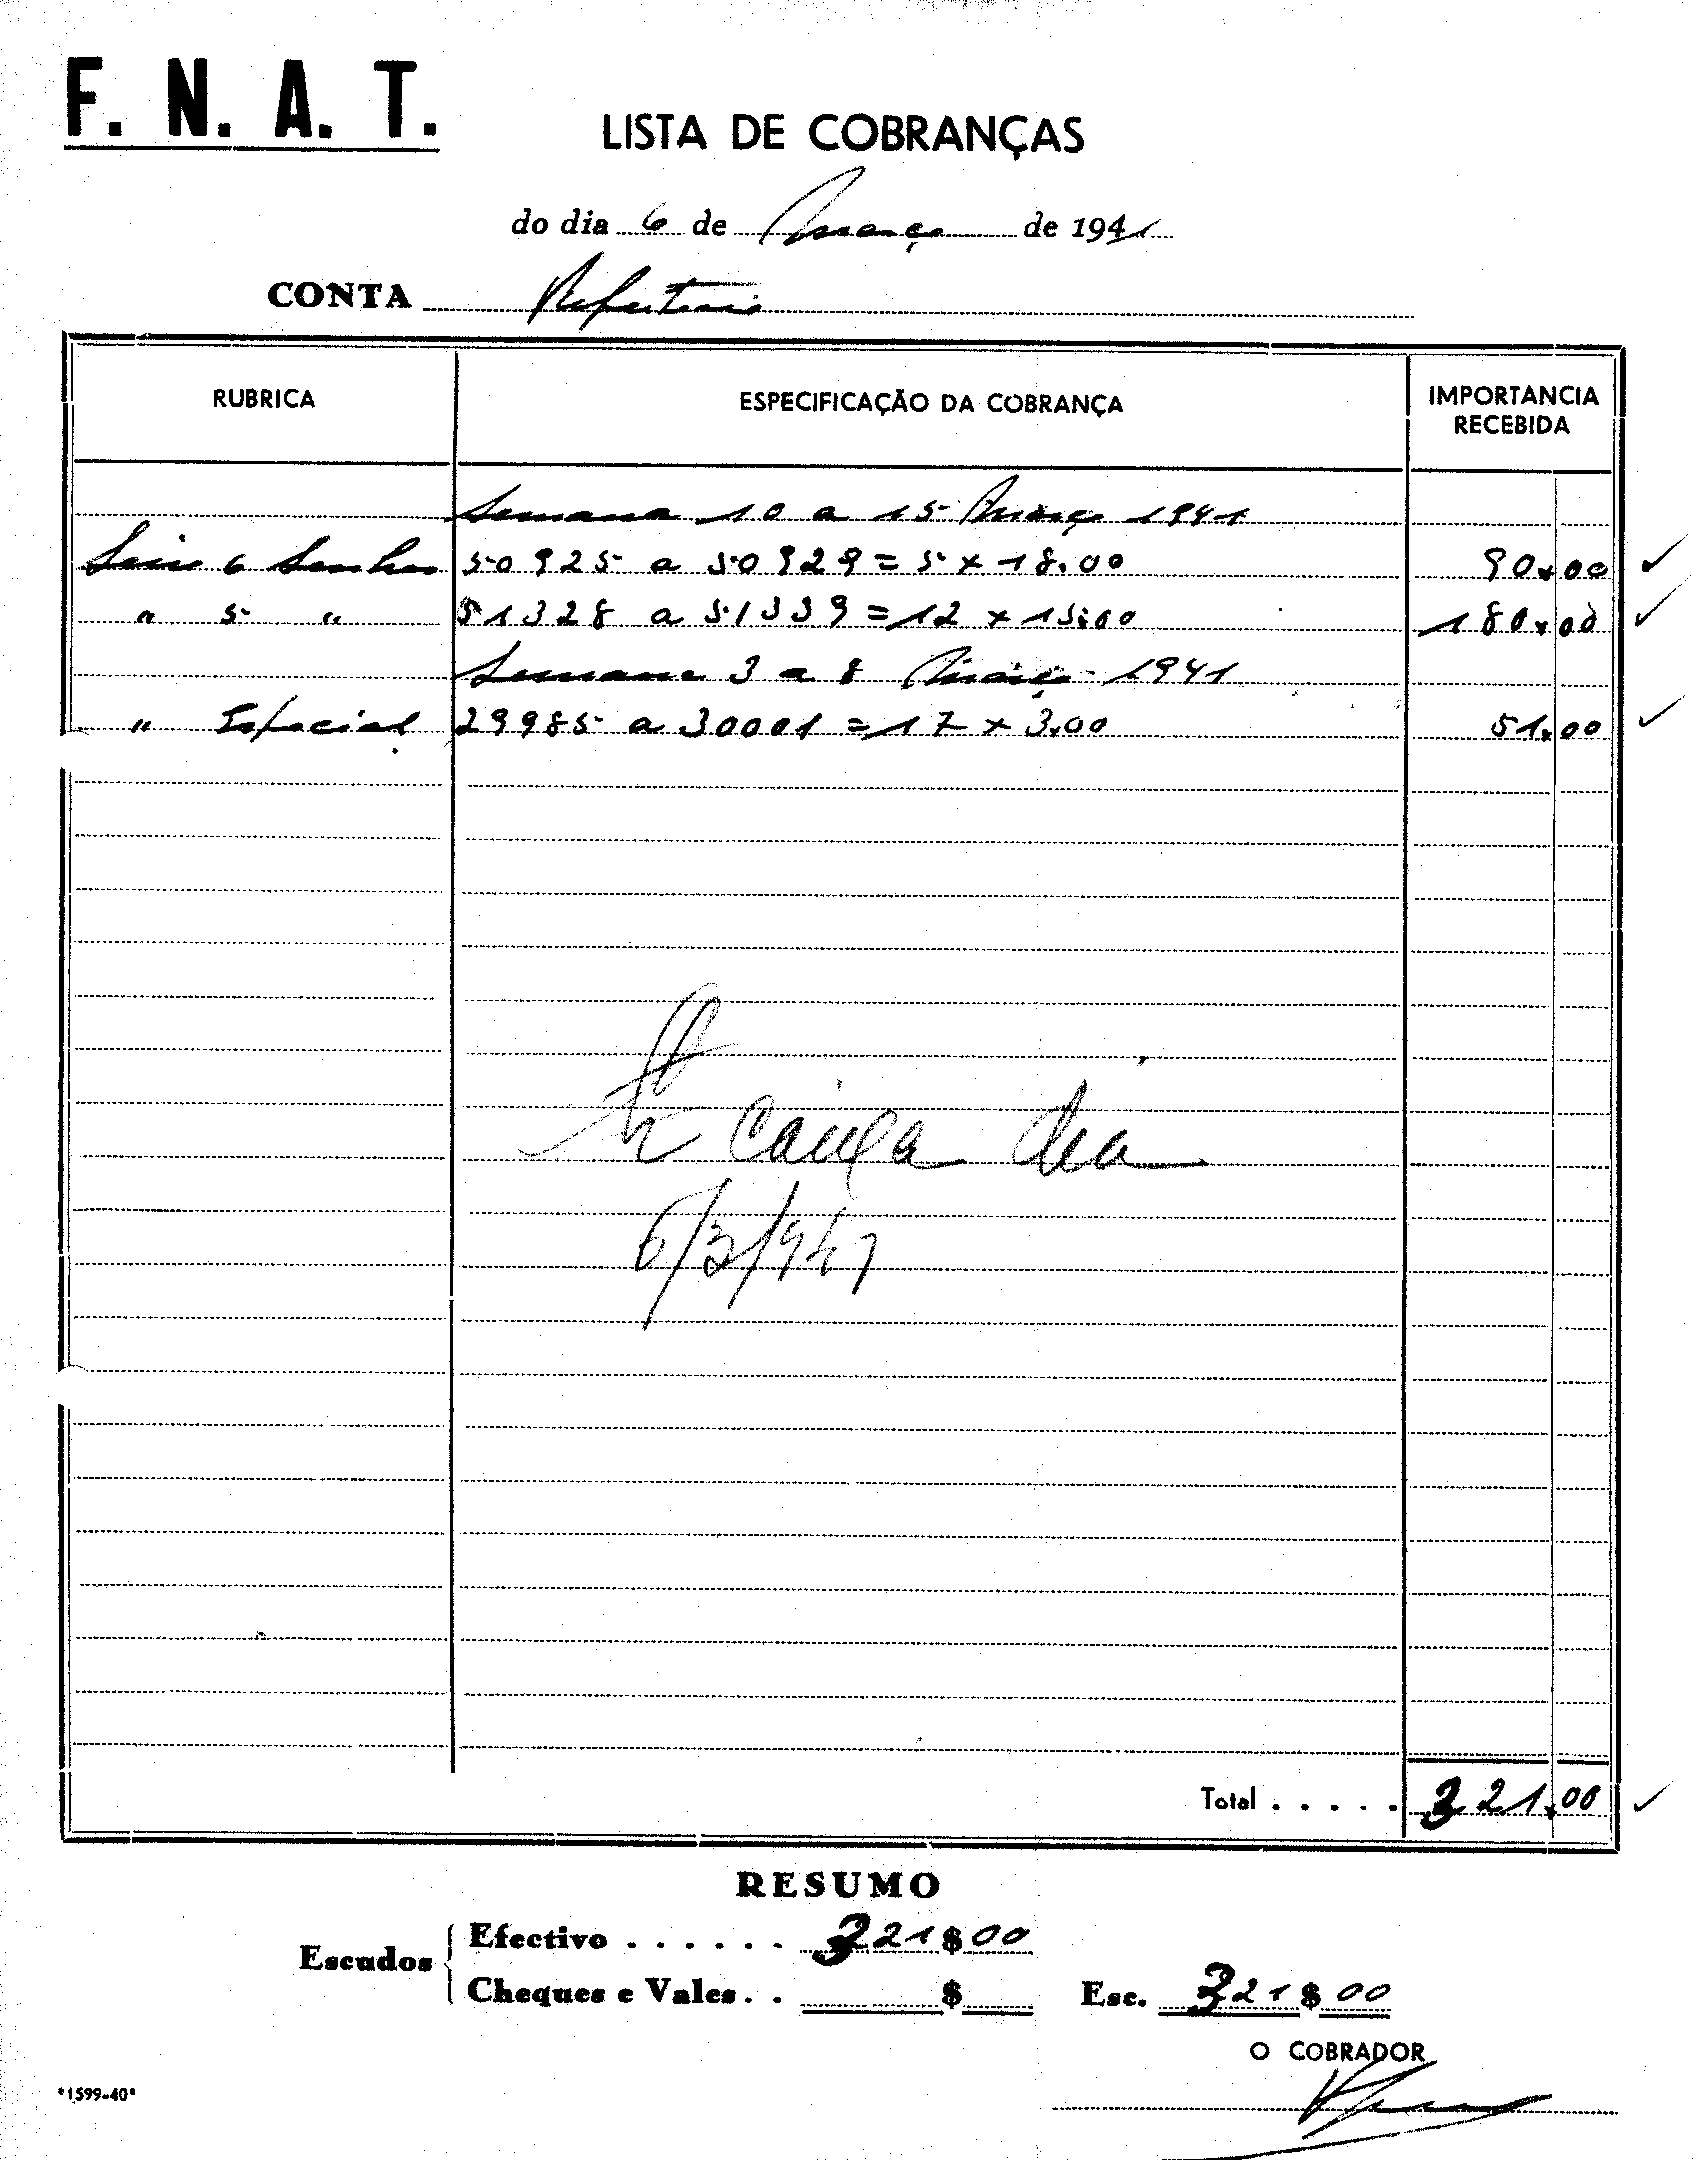 F. N. A. T.
LISTA DE COBRANÇAS
do dia 6 de Março de 1941
CONTA Refeitorio
RUBRICA ESPECIFICAÇÃO DA COBRANÇA IMPORTANCIA RECEBIDA
Semana 10 a 15 Março 1941
Série 6 Senhas 50925 a 50929 = 5 x 18.00 90.00
" 5 " 51328 a 51339 = 12 x 15.00 180.00
Semana 3 a 8 Março 1941
" Especial 29985 a 30001 = 17 x 3.00 51.00
caixa dia
6/3/941
Total . . . . . 321.00
RESUMO
Escudos
Efectivo . . . . . . 321$00
Cheques e Vales . . $ Esc. 321$00
O COBRADOR
*1599-40*